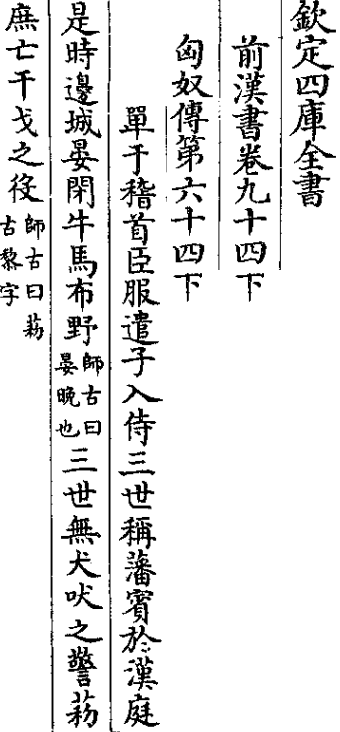 欽定四庫全書
前漢書卷九十四下
匈奴傳第六十四下
單于稽首臣服遣子入侍三世稱藩賓於漢庭
是時邊城晏閉牛馬布野師古曰晏晚也三世無犬吠之警䔣
庶亡干戈之役師古曰䔣古黎字